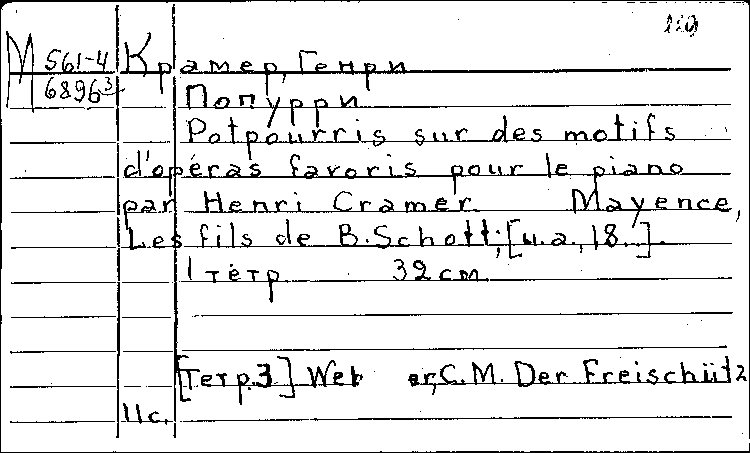 119
М 561-4 Крамер, Генри
68963
Попурри
Potpourris sur des motifs
d'opéras favoris pour le piano
par Henri Cramer. Mayence,
Les fils de B. Schott; [u.a., 18..].
1 тетр 32 cm
[Тетр.3] Weber, C. M. Der Freischütz
11с.